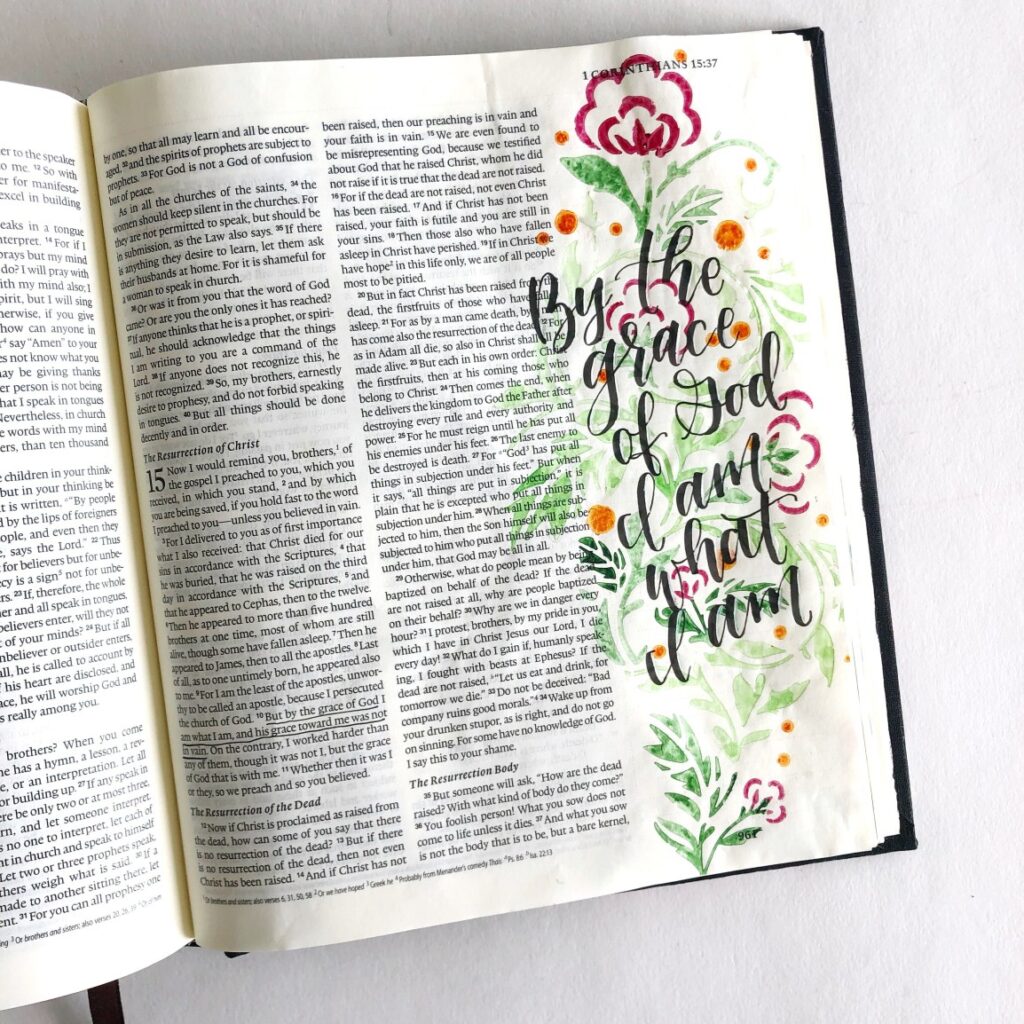 er to the speaker
o me. 12 So with
er for manifesta-
excel in building
eaks in a tongue
nterpret. 14 For if I
rays but my mind
do? I will pray with
ith my mind also; I
pirit, but I will sing
therwise, if you give
how can anyone in
r4 say "Amen" to your
es not know what you
may be giving thanks
er person is not being
that I speak in tongues
Nevertheless, in church
e words with my mind
ers, than ten thousand
e children in your think-
but in your thinking be
t is written, "By people
d by the lips of foreigners
ople, and even then they
e, says the Lord." 22 Thus
for believers but for unbe-
ecy is a sign5 not for unbe-
ers. 23 If, therefore, the whole
her and all speak in tongues,
lievers enter, will they not
t of your minds? 24 But if all
nbeliever or outsider enters,
all, he is called to account by
f his heart are disclosed, and
ce, he will worship God and
s really among you.
brothers? When you come
ne has a hymn, a lesson, a rev-
e, or an interpretation. Let all
or building up. 27 If any speak in
re be only two or at most three,
rn, and let someone interpret.
s no one to interpret, let each of
nt in church and speak to himself
Let two or three prophets speak,
thers weigh what is said. 30 If a
made to another sitting there, let
ent. 31 For you can all prophesy one
3 Or brothers and sisters; also verses 20, 26, 39
1 CORINTHIANS 15:37
by one, so that all may learn and all be encour-
aged, 32 and the spirits of prophets are subject to
prophets. 33 For God is not a God of confusion
but of peace.
As in all the churches of the saints, 34 the
women should keep silent in the churches. For
they are not permitted to speak, but should be
in submission, as the Law also says. 35 If there
is anything they desire to learn, let them ask
their husbands at home. For it is shameful for
a woman to speak in church.
36 Or was it from you that the word of God
came? Or are you the only ones it has reached?
37 If anyone thinks that he is a prophet, or spiri-
tual, he should acknowledge that the things
I am writing to you are a command of the
Lord. 38 If anyone does not recognize this, he
is not recognized. 39 So, my brothers, earnestly
desire to prophesy, and do not forbid speaking
in tongues. 40 But all things should be done
decently and in order.
The Resurrection of Christ
15 Now I would remind you, brothers,1 of
the gospel I preached to you, which you
received, in which you stand, 2 and by which
you are being saved, if you hold fast to the word
I preached to you—unless you believed in vain.
3 For I delivered to you as of first importance
what I also received: that Christ died for our
sins in accordance with the Scriptures, 4 that
he was buried, that he was raised on the third
day in accordance with the Scriptures, 5 and
that he appeared to Cephas, then to the twelve.
6 Then he appeared to more than five hundred
brothers at one time, most of whom are still
alive, though some have fallen asleep. 7 Then he
appeared to James, then to all the apostles. 8 Last
of all, as to one untimely born, he appeared also
to me. 9 For I am the least of the apostles, unwor-
thy to be called an apostle, because I persecuted
the church of God. 10 But by the grace of God I
am what I am, and his grace toward me was not
in vain. On the contrary, I worked harder than
any of them, though it was not I, but the grace
of God that is with me. 11 Whether then it was I
or they, so we preach and so you believed.
The Resurrection of the Dead
12 Now if Christ is proclaimed as raised from
the dead, how can some of you say that there
is no resurrection of the dead? 13 But if there
is no resurrection of the dead, then not even
Christ has been raised. 14 And if Christ has not
been raised, then our preaching is in vain and
your faith is in vain. 15 We are even found to
be misrepresenting God, because we testified
about God that he raised Christ, whom he did
not raise if it is true that the dead are not raised.
16 For if the dead are not raised, not even Christ
has been raised. 17 And if Christ has not been
raised, your faith is futile and you are still in
your sins. 18 Then those also who have fallen
asleep in Christ have perished. 19 If in Christ we
have hope2 in this life only, we are of all people
most to be pitied.
20 But in fact Christ has been raised from the
dead, the firstfruits of those who have fallen
asleep. 21 For as by a man came death, by a man
has come also the resurrection of the dead. 22 For
as in Adam all die, so also in Christ shall all be
made alive. 23 But each in his own order: Christ
the firstfruits, then at his coming those who
belong to Christ. 24 Then comes the end, when
he delivers the kingdom to God the Father after
destroying every rule and every authority and
power. 25 For he must reign until he has put all
his enemies under his feet. 26 The last enemy to
be destroyed is death. 27 For "God3 has put all
things in subjection under his feet." But when
it says, "all things are put in subjection," it is
plain that he is excepted who put all things in
subjection under him. 28 When all things are sub-
jected to him, then the Son himself will also be
subjected to him who put all things in subjection
under him, that God may be all in all.
29 Otherwise, what do people mean by being
baptized on behalf of the dead? If the dead
are not raised at all, why are people baptized
on their behalf? 30 Why are we in danger every
hour? 31 I protest, brothers, by my pride in you,
which I have in Christ Jesus our Lord, I die
every day! 32 What do I gain if, humanly speak-
ing, I fought with beasts at Ephesus? If the
dead are not raised, "Let us eat and drink, for
tomorrow we die." 33 Do not be deceived: "Bad
company ruins good morals."4 34 Wake up from
your drunken stupor, as is right, and do not go
on sinning. For some have no knowledge of God.
I say this to your shame.
The Resurrection Body
35 But someone will ask, "How are the dead
raised? With what kind of body do they come?"
36 You foolish person! What you sow does not
come to life unless it dies. 37 And what you sow
is not the body that is to be, but a bare kernel,
1 Or brothers and sisters; also verses 6, 31, 50, 58 2 Or we have hoped 3 Greek he 4 Probably from Menander's comedy Thais Ps. 8:6 Isa. 22:13
By the
grace
of God
I am
what
I am
961